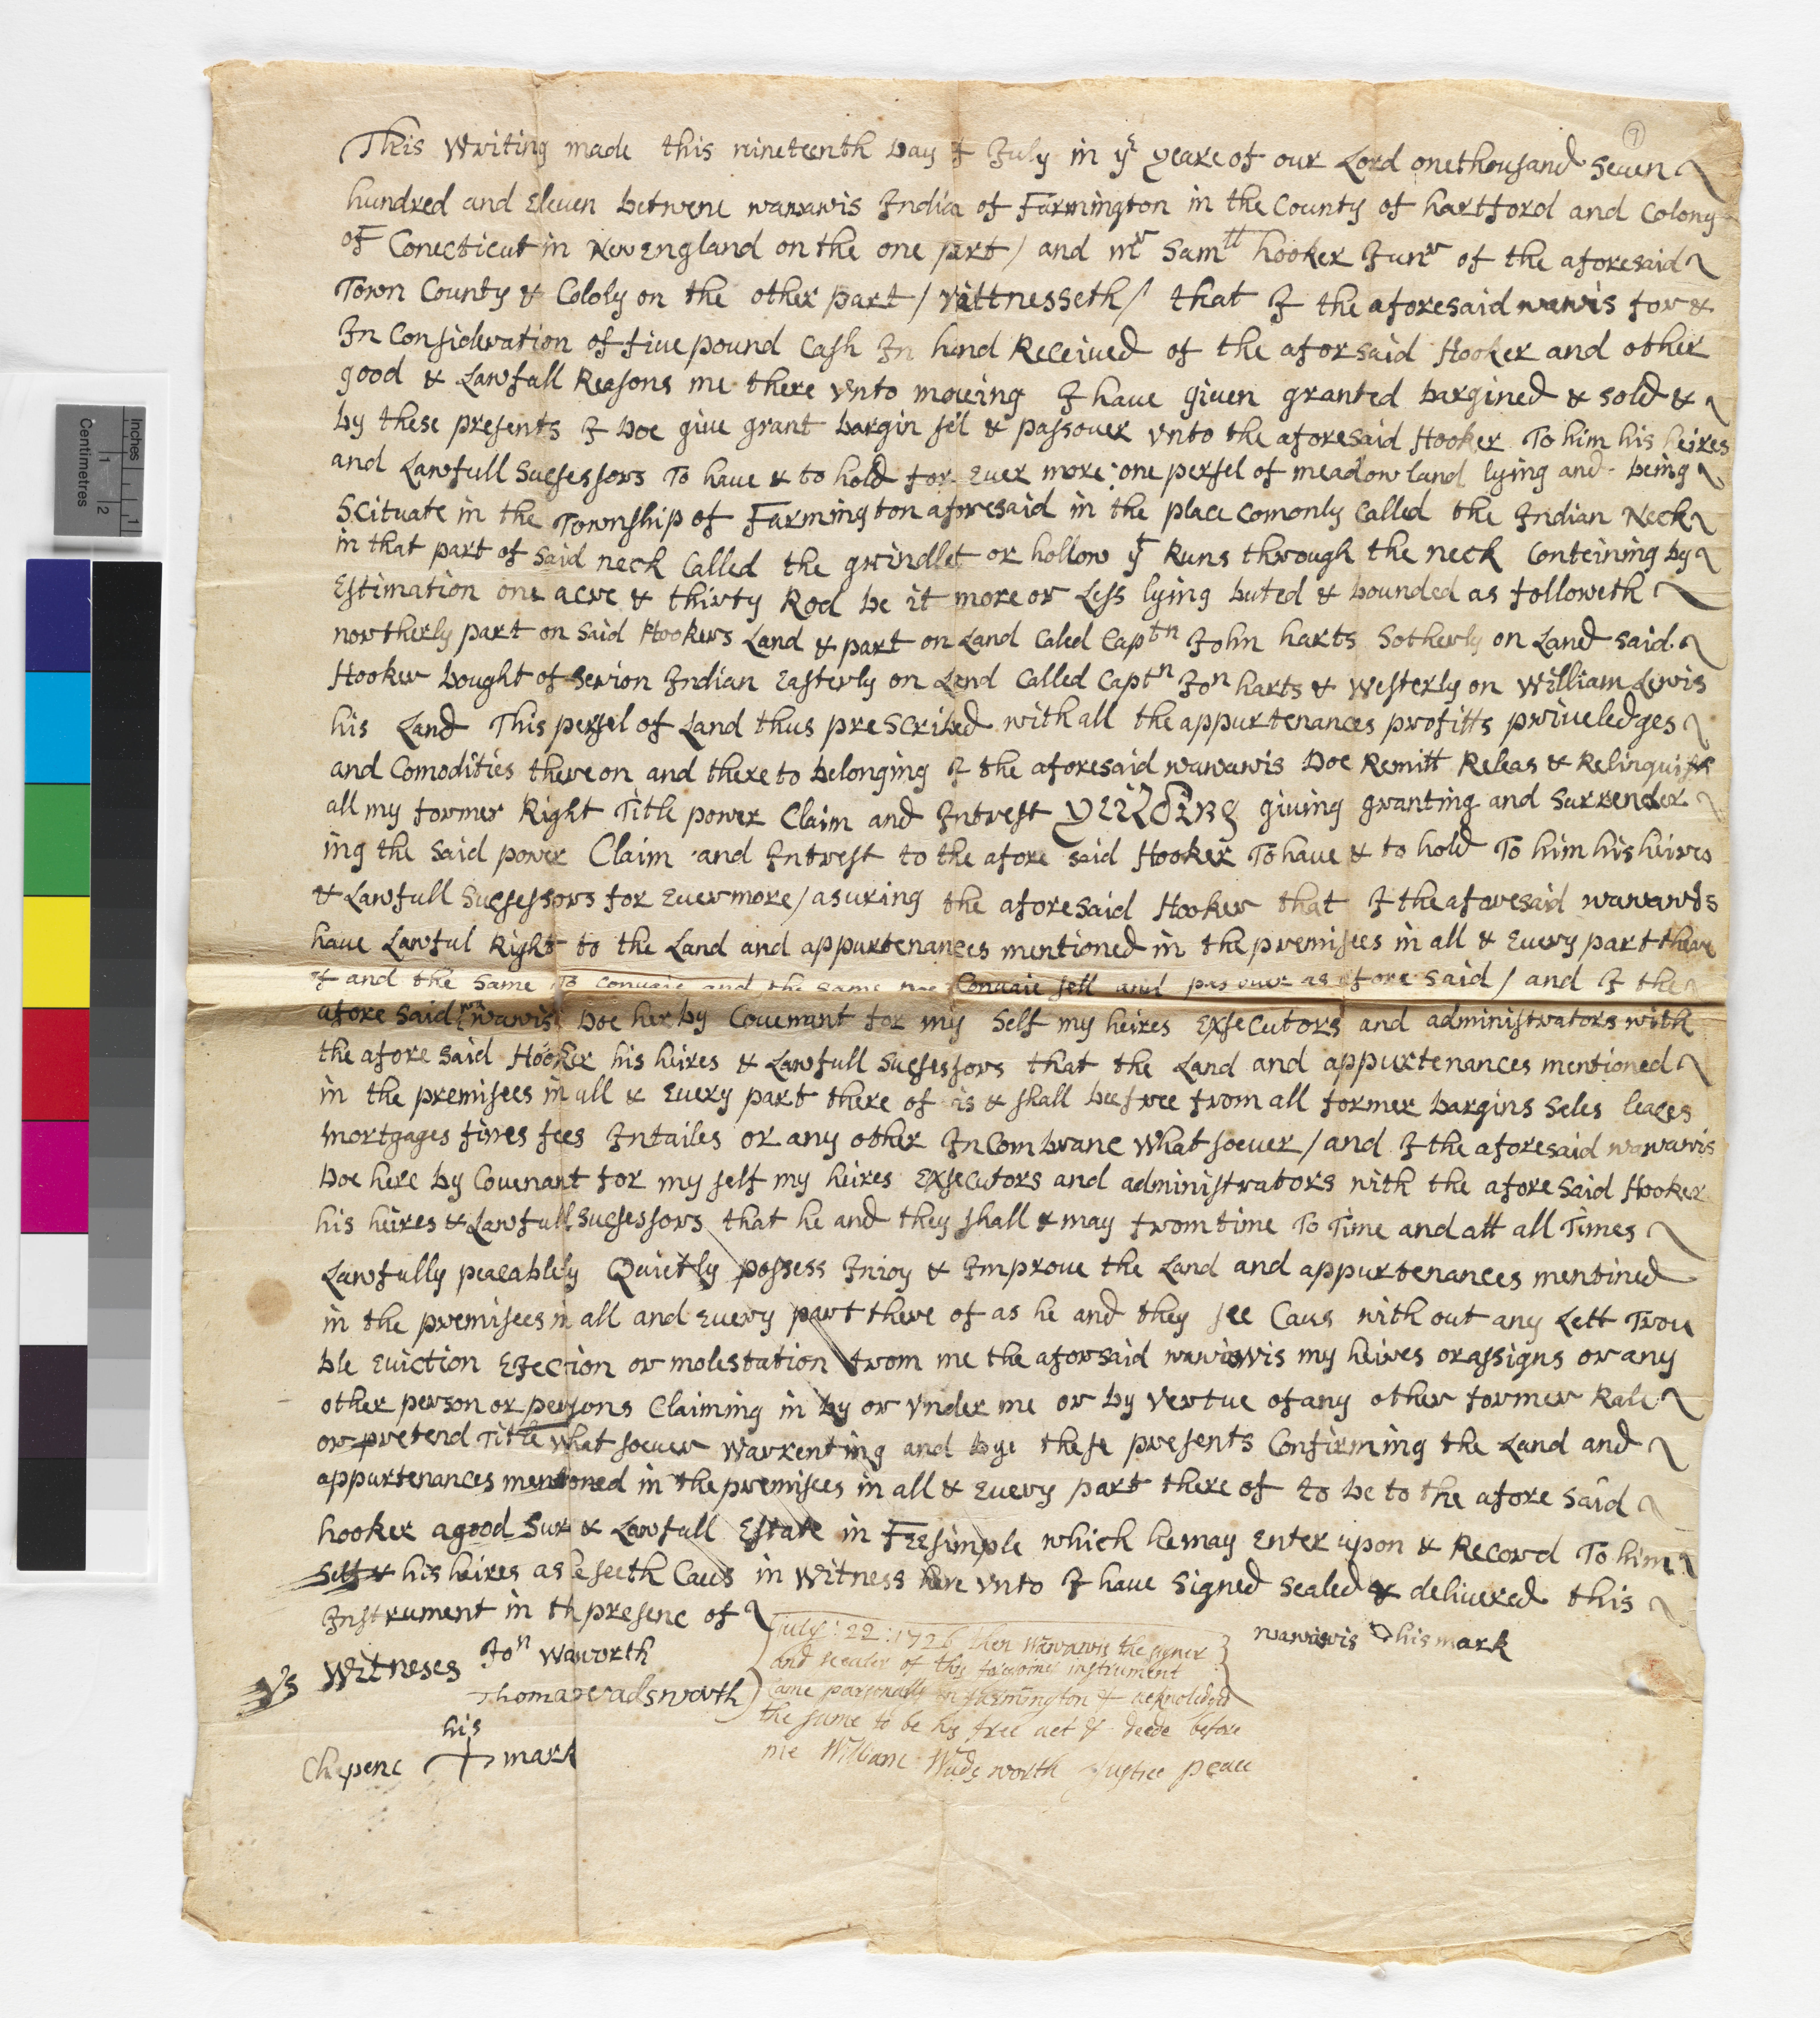 9
This Writing made this nineteenth Day of July in yͤ yeare of our Lord onethousand Seuen
hundred and Eleuen betwene wawawis Indian of Farmington in the County of hartford and Colony
of Conecticut in New England on the one part / and mr Samll hooker Junr of the aforesaid
Town County & Cololy on the other part / Wittnesseth / that I the aforesaid wawis for &
In Consideration of fiue pound Cash In hand Received of the aforsaid Hooker and other
good & Lawfull Reasons me there vnto moueing I haue giuen granted bargined & sold &
by these presents I Doe giue grant bargin sel & passouer vnto the aforesaid Hooker To him his heires
and Lawfull Sucsessors To haue & to hold for Euer more : one persel of meadow land lying and being
Scituate in the Township of Farmington aforesaid in the place Comonly Called the Indian Neck
in that part of said neck Called the grindlet or hollow yt Runs through the neck Conteining by
Estimation one acre & thirty Rod be it more or Less lying buted & bounded as followeth
northerly part on Said Hookers Land & part on Land Caled Captn John harts Sotherly on Land said
Hooker bought of Serion Indian Easterly on Land Called Captn Jon harts & Westerly on William Lewis
his Land This persel of Land thus preScribed with all the appurtenances profitts priueledges
and Comodities thereon and there to belonging I the aforesaid wawawis Doe Remitt Releas & Relinquish
all my former Right Title power Claim and Intrest yeilding giuing granting and Surrender
ing the said power Claim and Intrest to the afore said Hooker To haue & to hold To him his heires
& Lawfull Sucsessors for Euermore / asuring the aforesaid Hooker that I the aforesaid wawawis
haue Lawful Right to the Land and appurtenances mentioned in the premisees in all & Euery part there
of and the Same To Conuaie and the same Doe Conuaie sell and pas ouer as afore said / and I the
afore said wawawis Doe herby Couenant for my Self my heires Exsecutors and administrators with
the afore said Hooker his heires & Lawfull Sucsessors that the Land and appurtenances mentioned
in the premisees in all & Euery part there of is & shall bee free from all former bargins Seles leases
mortgages fines fees Intailes or any other InCombranc whatsoeuer / and I the aforesaid wawawis
Doe here by Couenant for my self my heires Exsecutors and administrators with the afore said Hooker
his heires & Lawfull Sucsessors that he and they shall & may from time To Time and att all Times
Lawfully peacablely Quietly possess Inioy & Improue the Land and appurtenances mentined
in the premisees in all and Euery part there of as he and they see Caus with out any Lett Trou
ble Eviction Ejecion or molestation from me the aforsaid wawawis my heires or assigns or any
other person or persons Claiming in by or vnder me or by vertue of any other former Rale
or pretend Title whatsoeuer Warrenting and bye these presents Confirming the Land and
appurtenances mentoned in the premisees in all & Euery part there of to be to the afore said
hooker a good Sur & Lawfull Estate in FEEsimple which he may Enter upon & Record To him
Self & his heires as he seeth Caus in Witness here vnto I haue Signed Sealed & delivered this
Instrument in th presenc of
wawawis his mark
Witneses Jon Waworth
Thomas wadsworth
his
Chepenc + mark
July : 22 : 1726 then Wawawis the signer
and sealer of this foregoing instrument
Came parsonally in farmington & acknoledged
the same to be his free act & deede before
me William Wadsworth Justice peace